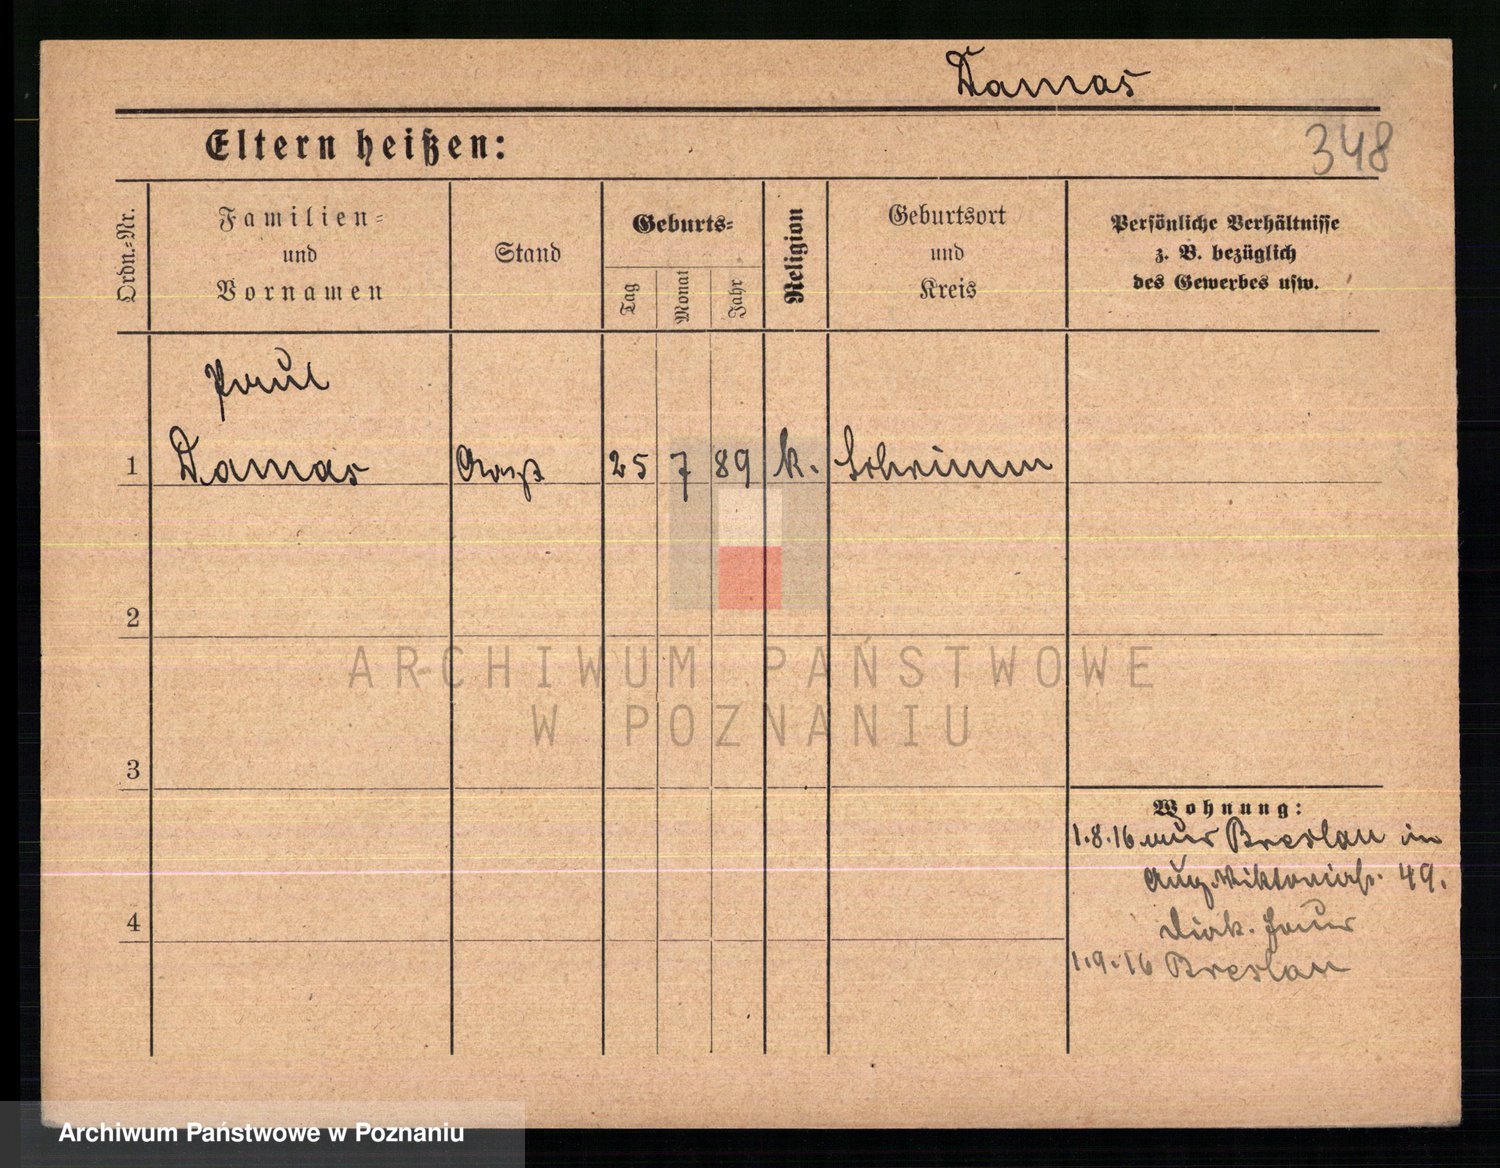 Damas
348
Eltern heißen:
Ordn.-Nr.
Familien-
und
Vornamen
Stand
Geburts-
Tag
Monat
Jahr
Religion
Geburtsort
und
Kreis
Persönliche Verhältnisse
z. B. bezüglich
des Gewerbes usw.
Paul
1 Damas Arzt 25 7 89 k. Schrimm
2
3
4
Wohnung:
1.8.16 aus Breslau in
Aug. Viktoriastr. 49.
1.9.16 Breslau
ARCHIWUM PAŃSTWOWE
W POZNANIU
Archiwum Państwowe w Poznaniu